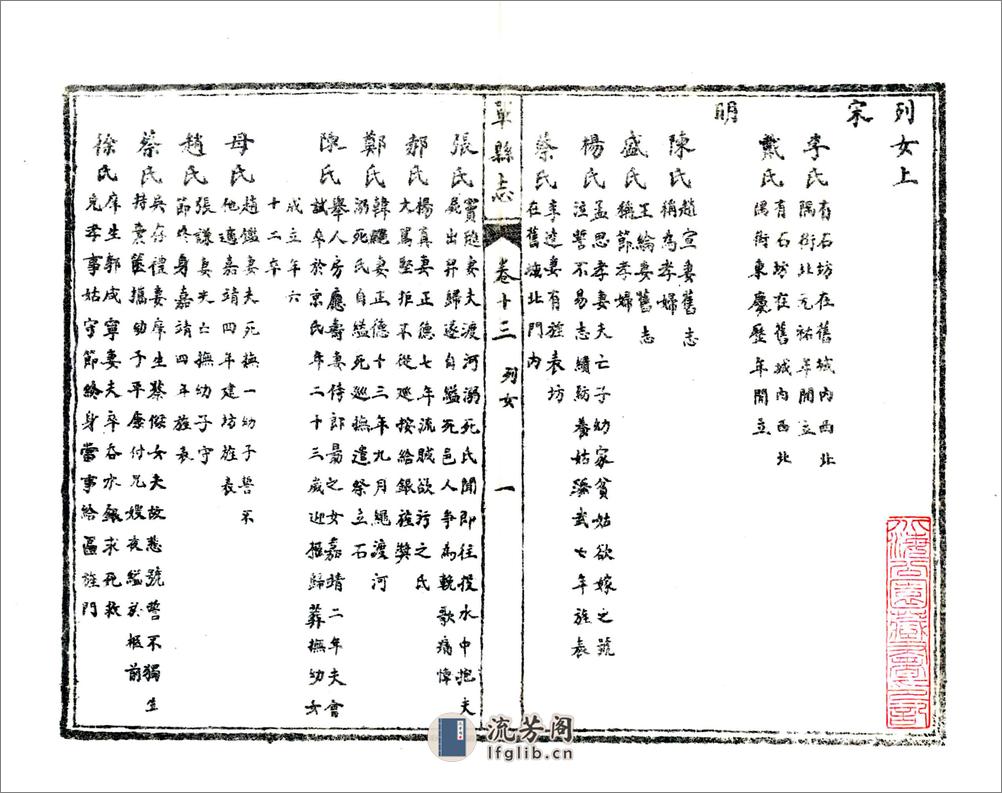 列女上
宋
李氏 有石坊在舊城內西北
隅街北元祐年間立
戴氏 有石坊在舊城內西北
隅街東慶歷年間立
明
陳氏 趙宣妻舊志
稱為孝婦
盛氏 王綸妻舊志
稱節孝婦
楊氏 孟思孝妻夫亡子幼家貧姑欲嫁之號
泣誓不易志績紡養姑洪武七年旌表
蔡氏 李達妻有旌表坊
在舊城北門內
單縣志 卷十三 列女 一
張氏 竇隨妻夫渡河溺死氏聞即往投水中抱夫
屍出舁歸遂自縊死邑人爭為輓歌痛悼
郝氏 楊真妻正德七年流賊欲污之氏
大罵堅拒不從巡按給銀旌獎
鄭氏 韓繩妻正德十三年九月繩渡河
溺死氏自縊死巡撫遣祭立石
陳氏 舉人房應壽妻侍郎勗之女嘉靖二年夫會
試卒於京氏年二十三歲迎柩歸葬撫幼女
成立年六
十二卒
母氏 趙鑑妻夫死撫一幼子誓不
他適嘉靖四年建坊旌表
趙氏 張謙妻夫亡撫幼子守
節終身嘉靖四年旌表
蔡氏 吳存禮妻庠生蔡傑女夫故悲號誓不獨生
持囊篋攜幼子平康付兄嫂夜縊於柩前
徐氏 庠生郭咸寧妻夫卒吞水銀求死救
免孝事姑守節終身當事給匾旌門
流芳阁
lfglib.cn